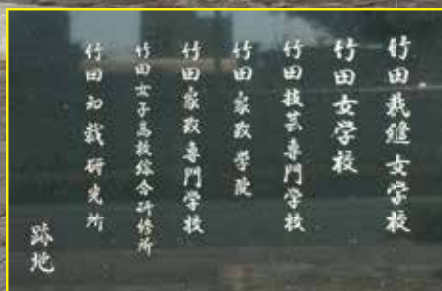 竹田裁縫女学校
竹田女学校
竹田技芸専門学校
竹田家政学院
竹田家政専門学校
竹田女子高等総合研修所
竹田和裁研究所
跡地